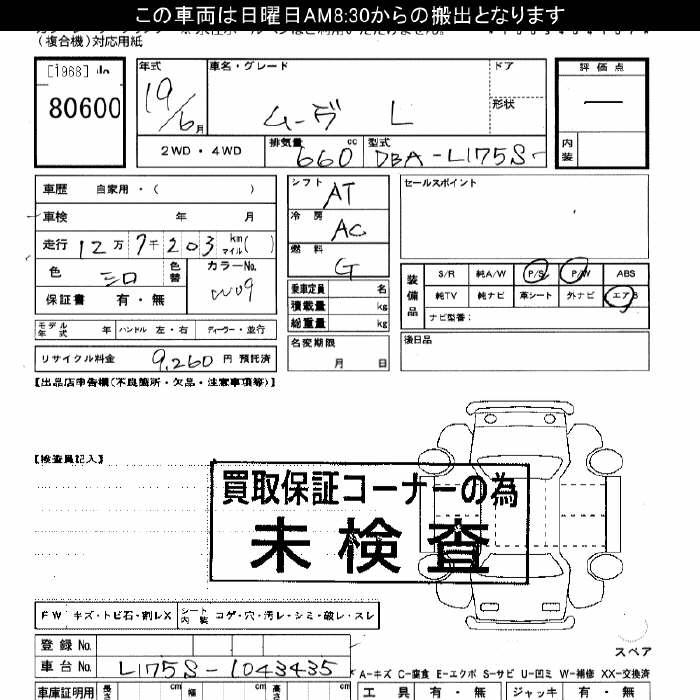 この車両は日曜日AM8:30からの搬出となります
(複合機)対応用紙
[1968]
80600
年式
19/6月
車名・グレード
ムーヴ L
ドア
形状
評価点
内装
2WD・4WD
排気量 660 cc
型式 DBA-L175S-
車歴 自家用・( )
車検 年 月
走行 12万7千203 km マイル( )
色
色替
カラーNo. W09
保証書 有・無
シフト AT
冷房 AC
燃料 G
乗車定員 名
積載量 kg
総重量 kg
名変期限
月 日
セールスポイント
装備品
S/R 純A/W P/S P/W ABS
純TV 純ナビ 革シート 外ナビ エアB
ナビ型番:
後日品
モデル年式 年 ハンドル 左・右 ディーラー・並行
リサイクル料金 9,260 円 預託済
【出品店申告欄(不良箇所・欠品・注意事項等)】
【検査員記入】
買取保証コーナーの為
未検査
FW キズ・トビ石・割レX シート内装 コゲ・穴・汚レ・シミ・破レ・スレ
スペア
登録No.
車台No. L175S-1043435
A-キズ C-腐食 E-エクボ S-サビ U-凹ミ W-補修 XX-交換済
車庫証明用 長さ cm 幅 cm 高さ cm
工具 有・無 ジャッキ 有・無